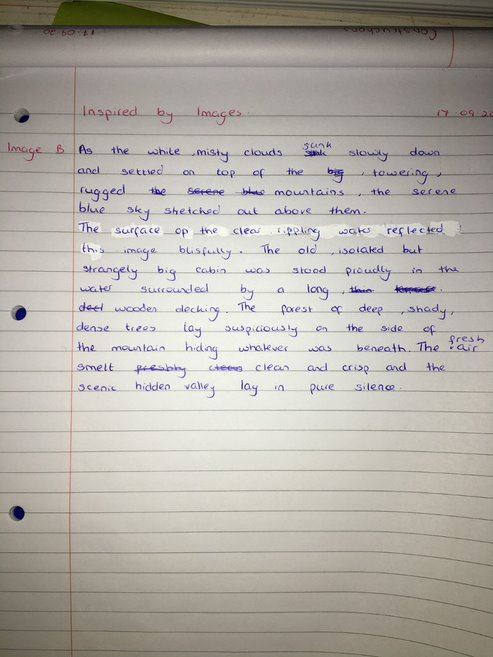 Constructions
17.09.20
Inspired by Images.
17.09.20
Image B
As the white, misty clouds sunk slowly down
and settled on top of the big, towering,
rugged the serene blue mountains, the serene
blue sky stretched out above them.
The surface of the clear, rippling water reflected
this image blissfully. The old, isolated but
strangely big cabin was stood proudly in the
water surrounded by a long, thin
decl wooden decking. The forest of deep, shady,
dense trees lay suspiciously on the side of
the mountain hiding whatever was beneath. The fresh air
smelt freshly clean and crisp and the
scenic hidden valley lay in pure silence.